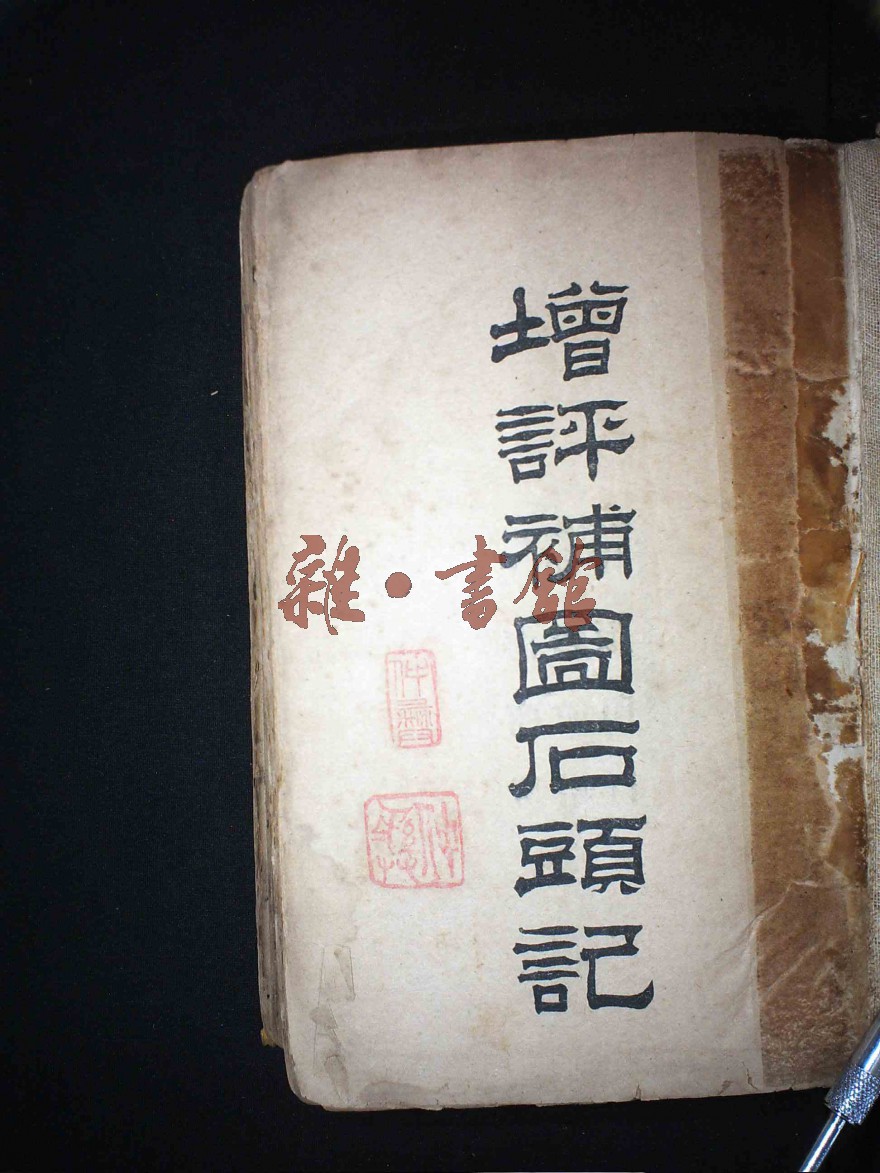 增評補圖石頭記
雜·書館